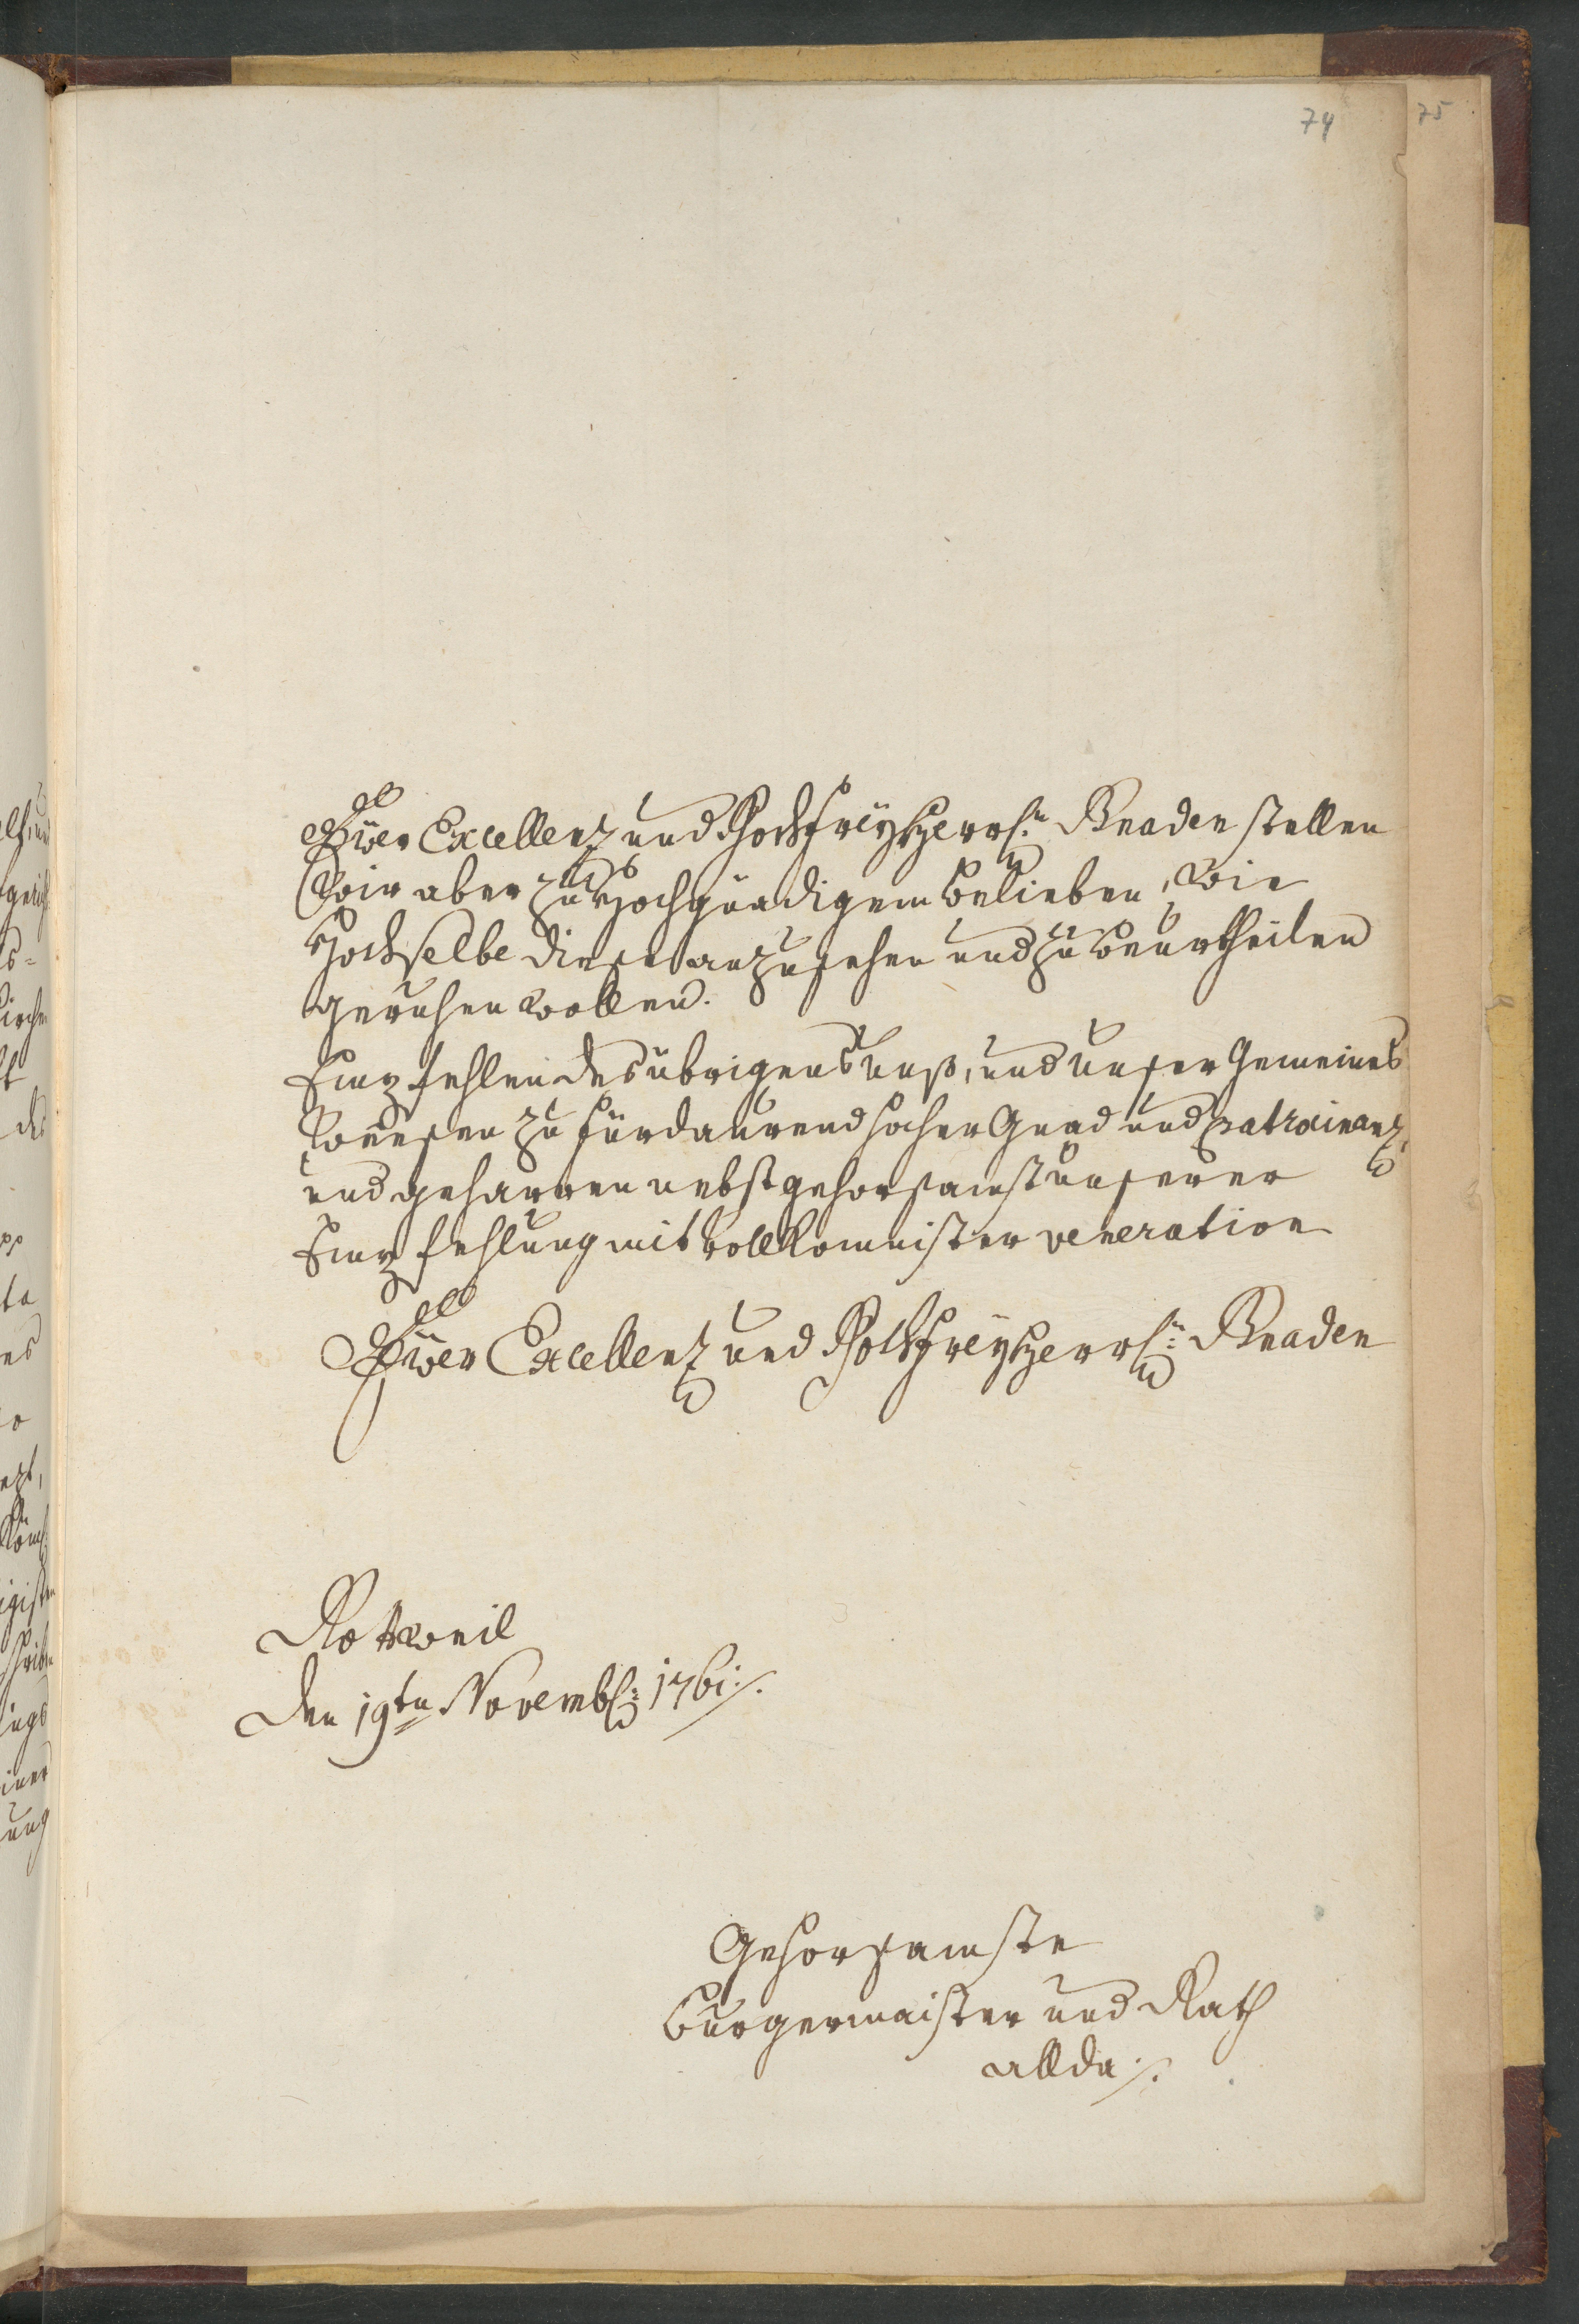 74
75
Eüer Excellenz und HochfreyHerrl:n Gnaden stellen
Wir aber zu Hochgnädigem belieben, Wie
Hochselbe dieses anzusehen und zu beurtheilen
geruhen wollen.
Empfehlen des übrigens unß, und unser Gemeines
Weesen zu fürdaurend hocher Gnad und patrocinanz,
und geharren nebst gehorsamst unserer
Empfehlung mit vollkomnister veneration
Eüer Excellenz und HochfreyHerrl:n Gnaden
Rottweil
den 19ten Novemb: 1761 ./.
Gehorsamste
Burgermaister und Rath
allda ./.